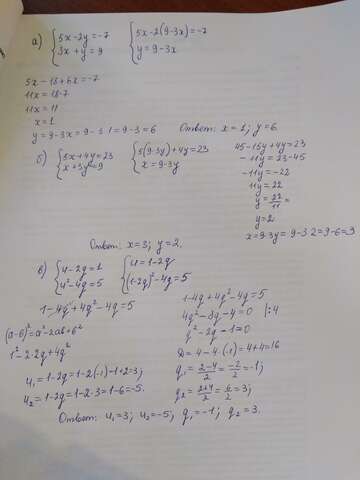 а) { 5x-2y=-7 { 5x-2(9-3x)=-7
{ 3x+y=9 { y=9-3x
5x-18+6x=-7
11x=18-7
11x=11
x=1
y=9-3x=9-3·1=9-3=6 Ответ: x=1; y=6
б) { 5x+4y=23 { 5(9-3y)+4y=23
{ x+3y=9 { x=9-3y
45-15y+4y=23
-11y=23-45
-11y=-22
11y=22
y=22/11=
y=2
x=9-3y=9-3·2=9-6=3
Ответ: x=3; y=2.
в) { u-2q=1 { u=1-2q
{ u²-4q=5 { (1-2q)²-4q=5
1-4q+4q²-4q=5
(a-b)²=a²-2ab+b²
1²-2·2q+4q²
1-4q+4q²-4q=5
4q²-8q-4=0 |:4
q²-2q-1=0
D=4-4·(-1)=4+4=16
q₁=(2-4)/2=-2/2=-1;
q₂=(2+4)/2=6/2=3;
u₁=1-2q=1-2·(-1)=1+2=3;
u₂=1-2q=1-2·3=1-6=-5.
Ответ: u₁=3; u₂=-5; q₁=-1; q₂=3.